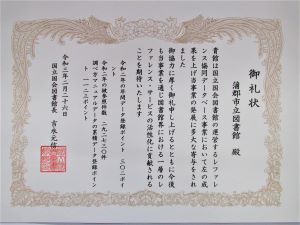 御礼状
蒲郡市立図書館 殿
貴館は国立国会図書館の運営するレファレ
ンス協同データベース事業において左の成
果を上げ当事業の発展に多大な寄与をされ
ました
御協力に厚く御礼申し上げるとともに今後
も当事業を通じ図書館界における一層のレ
ファレンス・サービスの活性化に貢献される
ことを期待いたします
令和二年の年間データ登録ポイント
令和二年の被参照件数
調べ方マニュアルデータの累積データ登録ポイン
ト
令和三年二月二十六日
国立国会図書館長 吉永元信